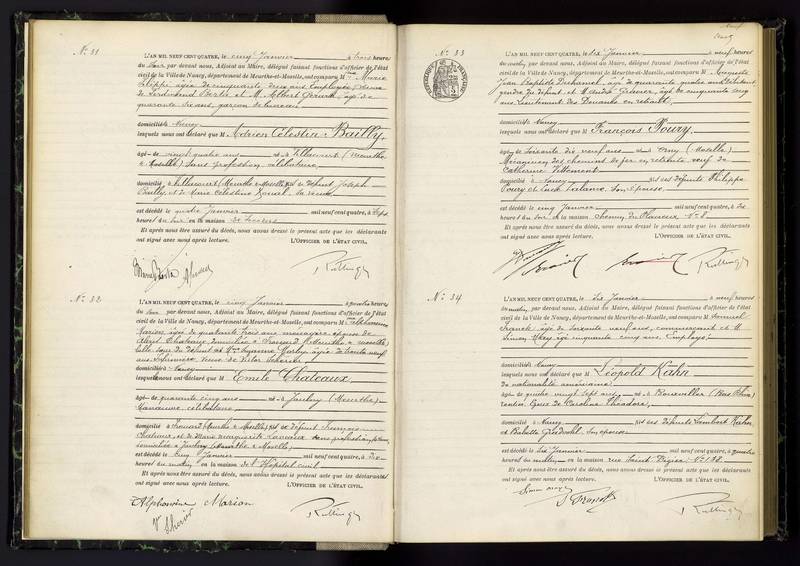 N° 31
L'AN MIL NEUF CENT QUATRE, le cinq Janvier à trois heures
du soir par devant nous, Adjoint au Maire, délégué faisant fonctions d'officier de l'état
civil de la Ville de Nancy, département de Meurthe-et-Moselle, ont comparu M Marie
âgée de cinquante ans Employée,
de Ferdinand et M. Albert Gérard, âgé de
quarante six ans, garçon de bureau
domiciliés à Nancy
lesquels nous ont déclaré que M Adrien Célestin Bailly,
âgé de vingt quatre ans né à (Meurthe
& Moselle) Sans profession célibataire
domicilié à (Meurthe & Moselle) fils de défunt Joseph
Bailly, et de Marie Célestine sa veuve
est décédé le quatre Janvier mil neuf cent quatre, à sept
heures du soir en la maison de Secours
Et après nous être assuré du décès, nous avons dressé le présent acte que les déclarants
ont signé avec nous après lecture. L'OFFICIER DE L'ÉTAT CIVIL.
N° 32
L'AN MIL NEUF CENT QUATRE, le cinq Janvier à quatre heures
du soir par devant nous, Adjoint au Maire, délégué faisant fonctions d'officier de l'état
civil de la Ville de Nancy, département de Meurthe-et-Moselle, ont comparu Mme Alphonsine
Marion âgée de quarante trois ans ménagère épouse de
Chateaux domiciliée à Frouard (Meurthe & Moselle)
belle soeur du défunt et Mme Suzanne âgée de trente neuf
ans Infirmière veuve de Victor
domiciliée à Nancy
lesquels nous ont déclaré que M Emile Chateaux,
âgé de quarante cinq ans né à (Meurthe)
Manoeuvre, célibataire
domicilié à Frouard (Meurthe & Moselle), fils de défunt François
Chateaux et de Marie Marguerite sans profession
domiciliée à (Meurthe & Moselle)
est décédé le cinq Janvier mil neuf cent quatre, à dix
heures du matin en la maison de l'Hôpital civil
Et après nous être assuré du décès, nous avons dressé le présent acte que les déclarants
ont signé avec nous après lecture. L'OFFICIER DE L'ÉTAT CIVIL.
Alphonsine Marion
N° 33
L'AN MIL NEUF CENT QUATRE, le six Janvier à neuf heures
du matin, par devant nous, Adjoint au Maire, délégué faisant fonctions d'officier de l'état
civil de la Ville de Nancy, département de Meurthe-et-Moselle, ont comparu M Auguste
Jean Baptiste âgé de quarante quatre ans
gendre du défunt et M. André âgé de cinquante cinq
ans, Lieutenant des Douanes en retraite,
domiciliés à Nancy
lesquels nous ont déclaré que M François Poury,
âgé de soixante dix neuf ans né à Orny (Moselle)
Mécanicien des chemins de fer en retraite veuf de
Catherine
domicilié à Nancy fils des défunts Philippe
Poury et son épouse
est décédé le cinq Janvier mil neuf cent quatre, à dix
heures du soir en la maison N° 8
Et après nous être assuré du décès, nous avons dressé le présent acte que les déclarants
ont signé avec nous après lecture. L'OFFICIER DE L'ÉTAT CIVIL.
N° 34
L'AN MIL NEUF CENT QUATRE, le six Janvier à neuf heures
du matin, par devant nous, Adjoint au Maire, délégué faisant fonctions d'officier de l'état
civil de la Ville de Nancy, département de Meurthe-et-Moselle, ont comparu M Samuel
Franck âgé de soixante neuf ans, commerçant et M.
Simon âgé cinquante cinq ans, Employé
domiciliés à Nancy
lesquels nous ont déclaré que M Léopold Kahn
de nationalité américaine
âgé de quatre vingt sept ans, né à Bouxwiller (Bas Rhin)
rentier Epoux de Caroline Théodore,
domicilié à Nancy fils des défunts Lambert Kahn
et Babette son épouse
est décédé le six Janvier mil neuf cent quatre, à quatre
heures du matin en la maison rue Saint Dizier N°
Et après nous être assuré du décès, nous avons dressé le présent acte que les déclarants
ont signé avec nous après lecture. L'OFFICIER DE L'ÉTAT CIVIL.